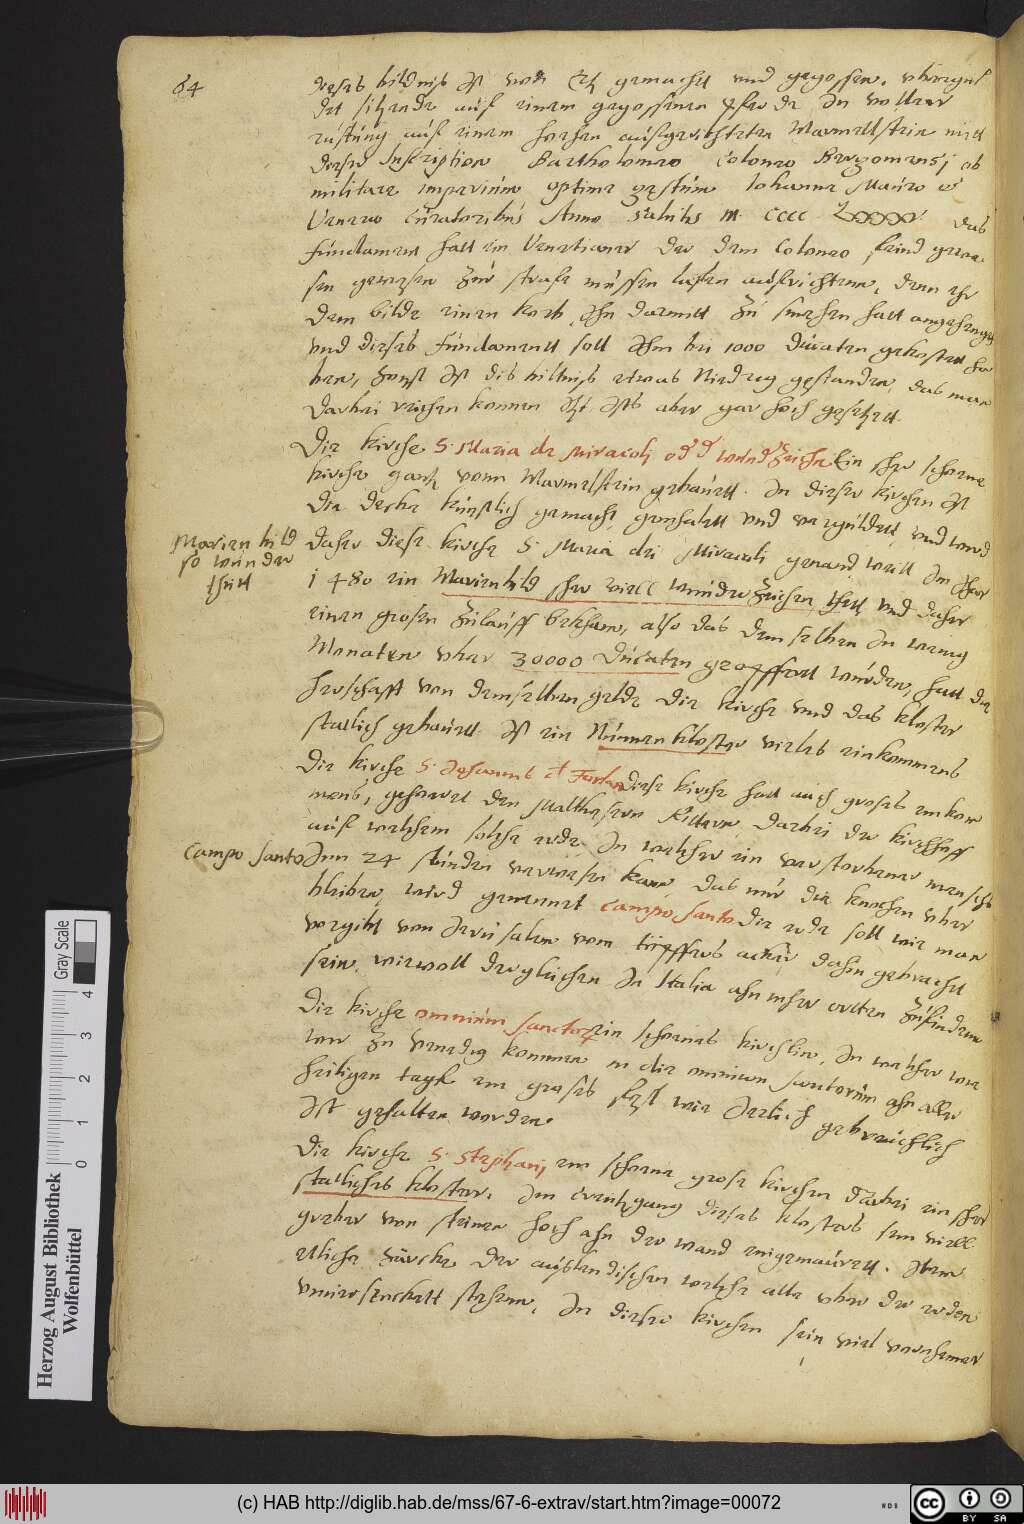 64
dieses bildnis ist von Ertz gemacht und gegossen, uberguldet
sitzende auf einem gegossenen pferde in voller
rustung auf einem hochen aufgerichteten Marmelstein mitt
dieser Inscription Bartholomeo Coleoneo Bergomensi ob
militare imperium optime gestum Iohanne Mauro et
Venerio Curatoribus Anno salutis M CCCC LXXXX das
fundament hatt ein Venetianer der dem Coloneo feind gewe-
sen gewesen zur strafe müssen lassen aufrichten, denn ehr
dem bilde einen korb ihn darmitt zu smehen hatt angehengtt
und dieses fundamentt soll ihm bei 1000 Ducaten gekostett ha
ben, sonst ist dis biltnis etwas Niedrig gestanden, das man
darbei reichen konnen itzt ists aber gar hoch gesetzett.
Die kirche S. Maria de Miracoli Ein sehr schone
kirche gantz vonn Marmelstein gebauett. In dieser kirchen ist
die decke künstlich gemacht gemhalett und vergüldett, und wird
daher diese kirche S. Maria dei Miracoli genand weill in ihr
1480 ein Marienbild sehr viell wunderzeichen thett und daher
einen grosen zulauff bekham, also das demselben in wenig
Monaten uber 30000 Ducaten geopffertt wurden, hatt die
herschafft von demselben gelde die kirche und das kloster
statlich gebauett. Ist ein Nunnenkloster vieles einkommens
Marien bild
so wunder
thutt
Die kirche S. Johannis diese kirche hatt auch groses einkom
mens, gehorett den Malthesern Rittern, darbei der kirchhoff
auf welchem solche erde, in welcher ein verstorbener mensch
Campo Santo
Inn 24 stunden verwesen kann das nur die knochen uber
bleiben, wird genennet Campo Santo die erde soll wie man
vorgibt von Jerusalem vom töpffers acker dahin gebracht
sein, wiewoll dergleichen in Italia ahn mehr orten zufinden
Die kirche omnium sanctor ein schones kirchlin, in welcher wie
wir zu Venedig kommen in die omnium sanctorum ahn aller
heiligen tagk ein groses fest wie Jerlich gebreuchlich
ist gehalten worden
Die kirche S. Stephani, ein schone grose kirchen darbei ein sehr
statliches kloster. Im Creutzgang dieses klosters sein viell
greber von steinen hoch ahn der wand eingemauert. Item
etliche der ausslendischen welche alle uber der erden
stehenn, In dieser kirchen sein viel vornehmer
Gray Scale
0 1 2 3 4
Herzog August Bibliothek
Wolfenbüttel
(c) HAB http://diglib.hab.de/mss/67-6-extrav/start.htm?image=00072
WDB
CC BY SA